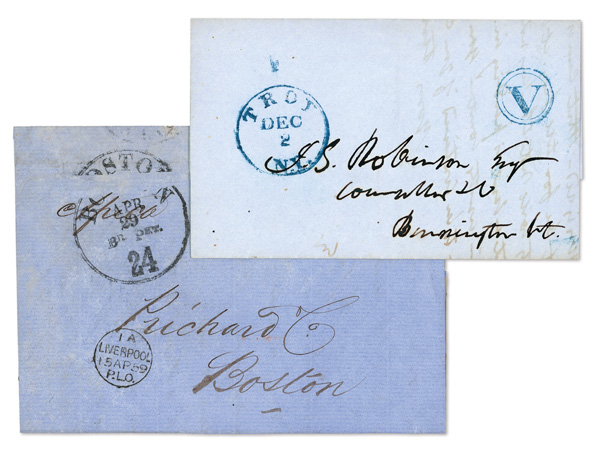 TROY
DEC
2
N.Y.
V
J.S. Robinson Esq
Bennington Vt.
BOSTON
APR
29
BR PKT.
24
Prichard
Boston
1A
LIVERPOOL
15AP59
P.L.O.